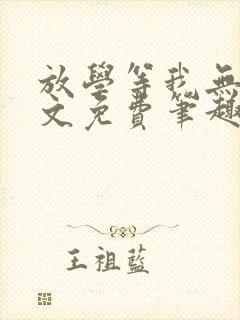 放學等我無
文免費筆趣
王祖藍